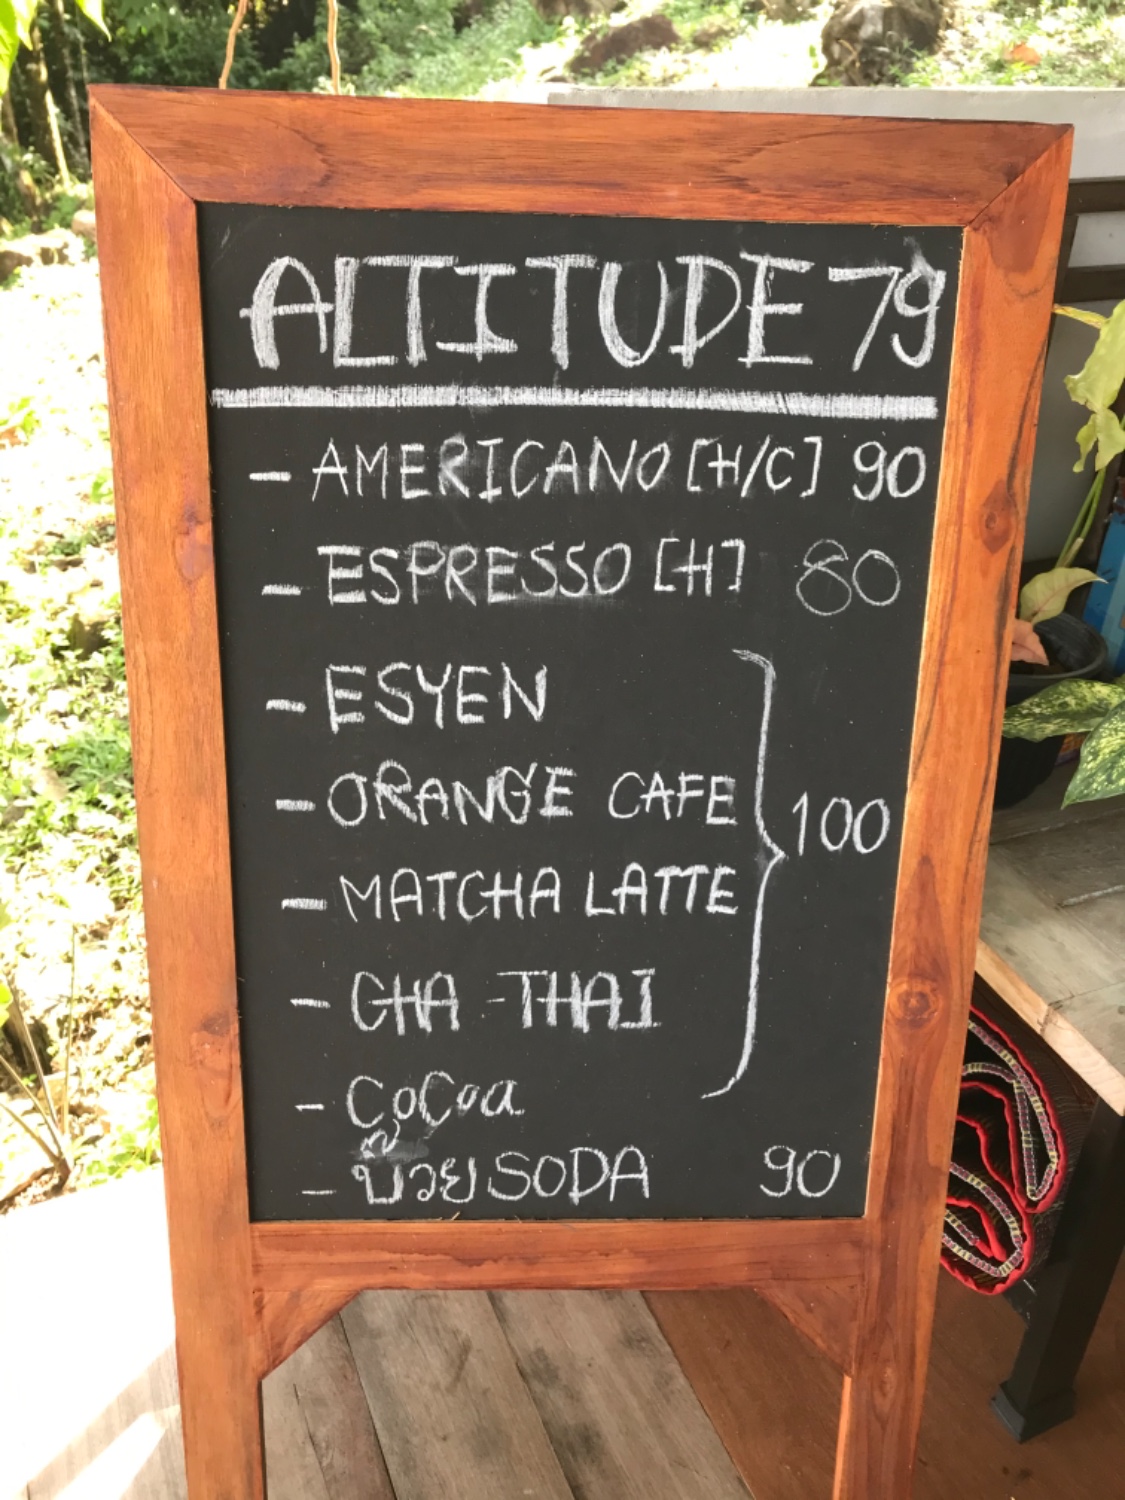 ALTITUDE 79
- AMERICANO [H/C] 90
- ESPRESSO [H] 80
- ESYEN
- ORANGE CAFE
- MATCHA LATTE
100
- CHA THAI
- CoCoa
- บ๊วย SODA 90